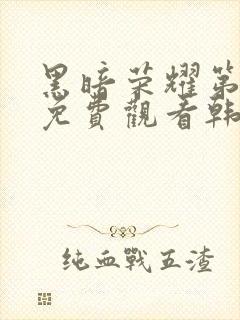 黑暗荣耀第
免費觀看韩
纯血戰五渣